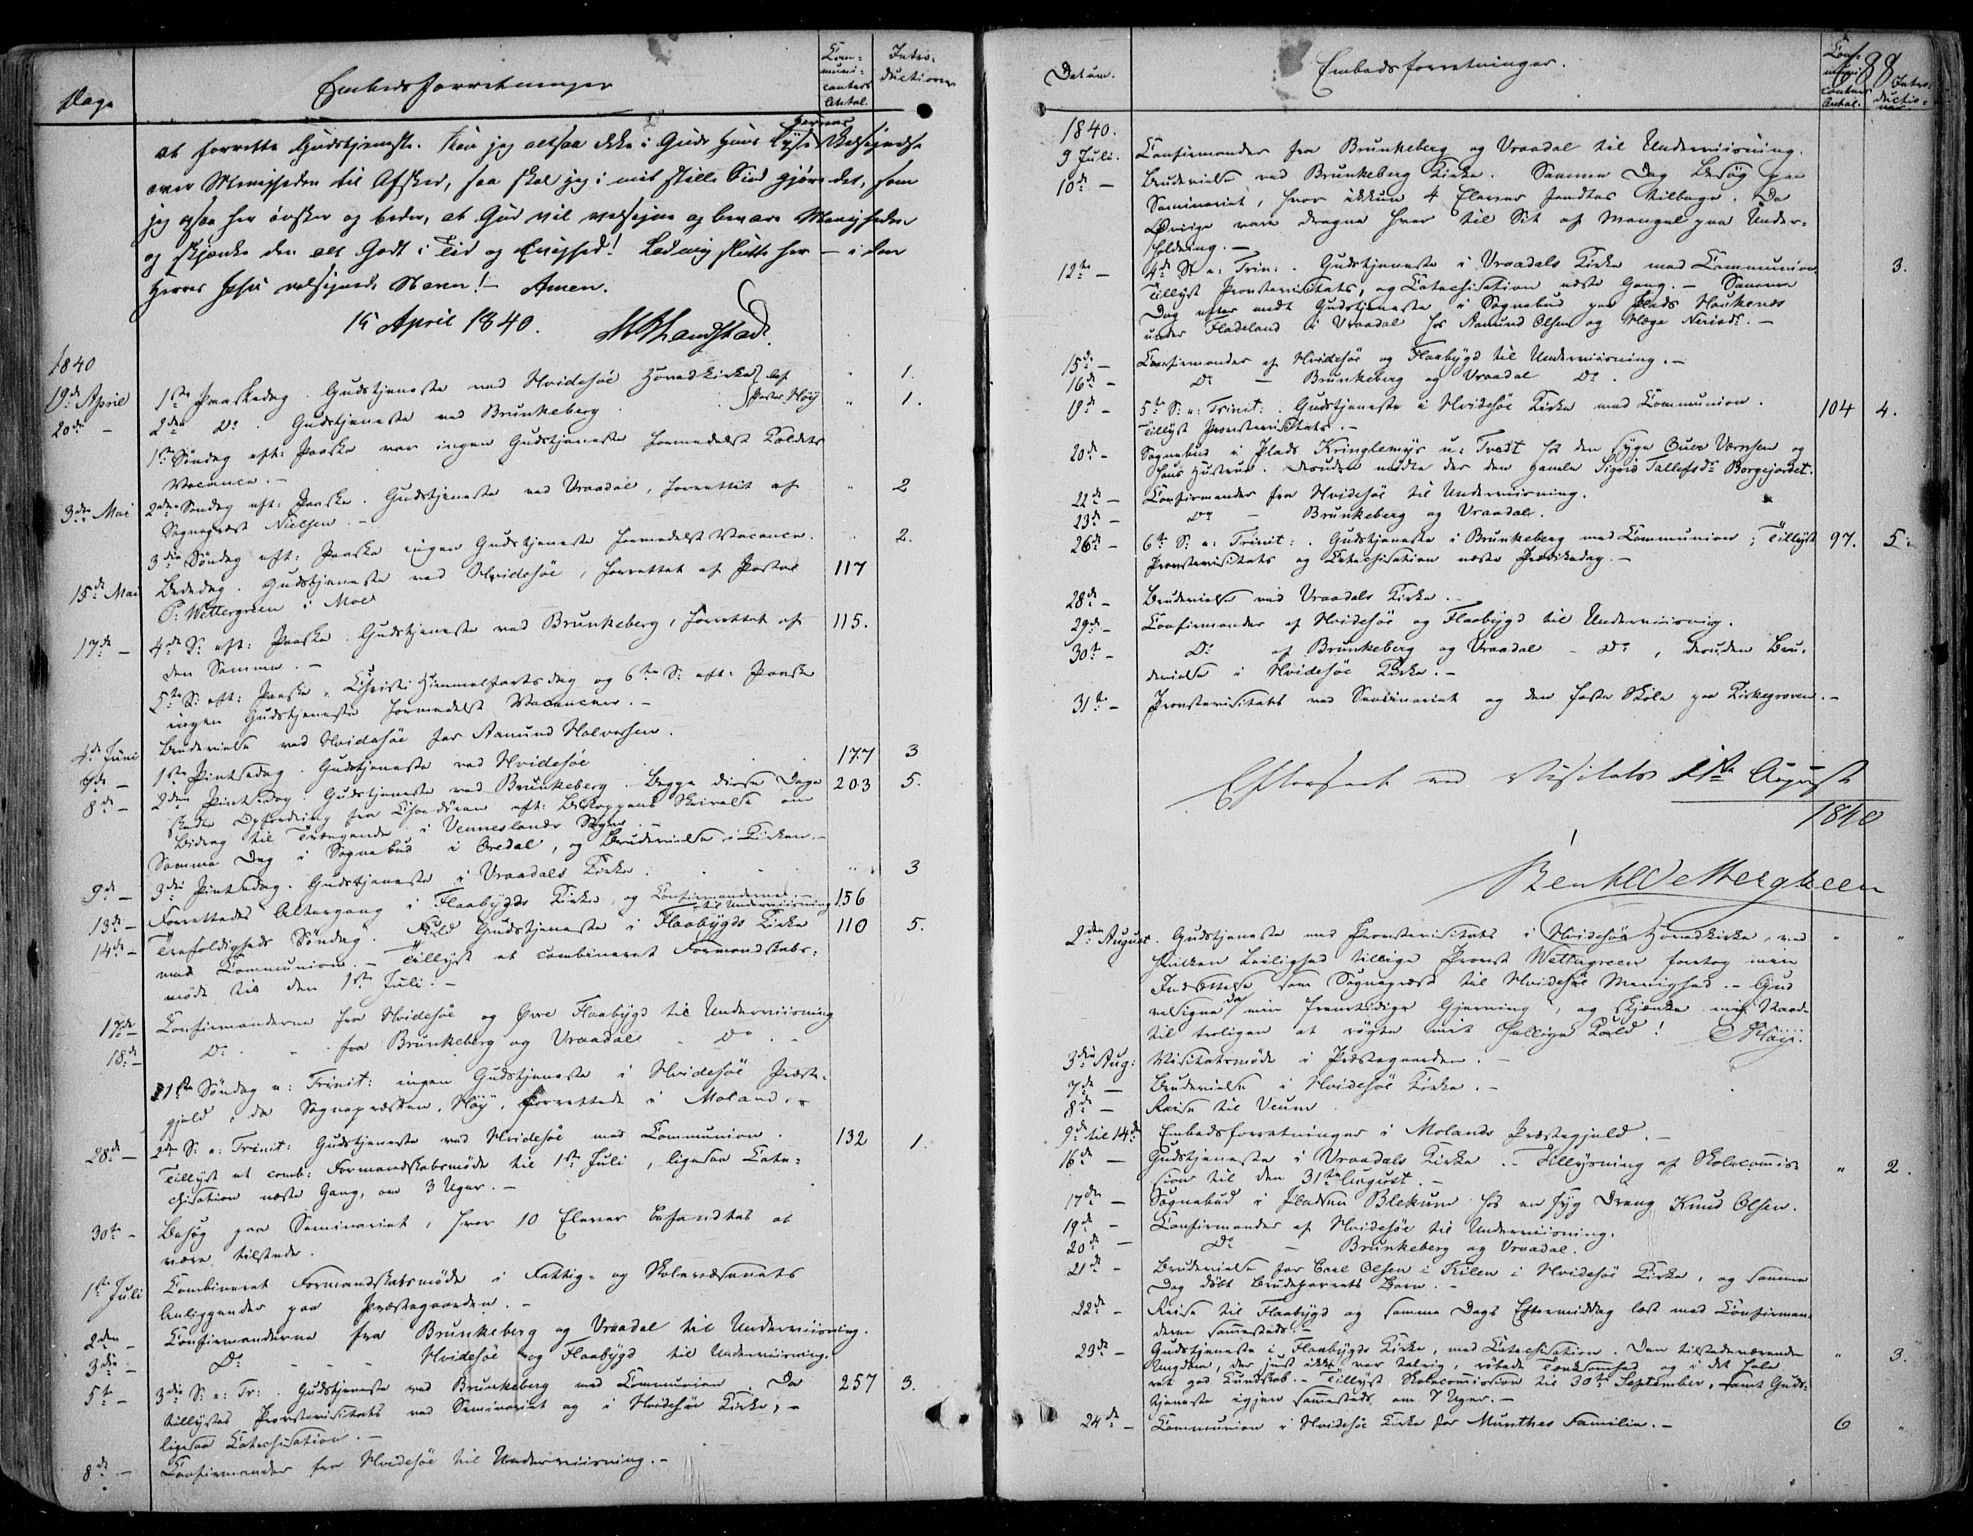 Dage
Embedsforretninger
Com-
muni-
canters
Antal.
Intro-
ductioner
at forrette Gudstjeneste. Kan jeg altsaa ikke i Guds Huus lyse Herrens Velsignelse
over Menigheden til Afsked, saa skal jeg i mit stille Sind gjøre det, som
jeg ogsaa her ønsker og beder, at Gud vil velsigne og bevare Menigheden
og skjænke den alt Godt i Tid og Evighed! Lad mig slutte her – i den
Herres Jesu velsignede Navn! – Amen.
15 April 1840. MBLandstad.
1840
19de April 1ste Paaskedag. Gudstjeneste ved Hvidesøe Hovedkirke } af " 1.
20de – 2den Do. Gudstjeneste ved Brunkeberg. } Pastor Høÿ " 1.
1ste Søndag eft: Paaske var ingen Gudstjeneste formedelst Kaldets
Vacance. –
3die Mai 2den Søndag eft: Paaske. Gudstjeneste ved Vraadal, forrettet af " 2
Sognepræst Nielsen. –
3die Søndag eft: Paaske ingen Gudstjeneste formedelst Vacance. " 2.
15de Mai Bededag. Gudstjeneste ved Hvidesøe, forrettet af Pastor 117
P. Wettergreen i Moe
17de – 4de S: eft: Paaske. Gudstjeneste ved Brunkeberg, forrettet af 115.
den Samme. –
5te S: eft: Paaske, Christi Himmelfarts dag og 6te S: eft: Paaske
ingen Gudstjeneste formedelst Vacancen. –
4de Juni Brudevielse ved Hvidesøe for Aamund Halvorsen.
7de – 1ste Pintsedag. Gudstjeneste ved Hvidesøe 177 3
8de – 2den Pintsedag. Gudstjeneste ved Brunkeberg. Begge disse Dage 203 5.
skete Opfordring fra Chordøren eft: Biskoppens Skrivelse om
Bidrag til Trængende i Venneslands Sogn. –
Samme Dag i Sognebud i Øvedal, og Brudevielse i Kirken. –
9de – 3die Pintsedag. Gudstjeneste i Vraadals Kirke. " 3
13de – Forrettedes Altergang i Flaabÿgds Kirke, og Confirmanderne til Underviisning 156
14de – Trefoldigheds Søndag. Fuld Gudstjeneste i Flaabÿgds Kirke 110 5.
med Communion. – Tillÿst et combineret Formandskabs-
møde til den 1ste Juli. –
17de – Confirmanderne fra Hvidesøe og Øvre Flaabÿgd til Underviisning
18de – Do. – fra Brunkeberg og Vraadal – Do. –
1ste Søndag e: Trinit: ingen Gudstjeneste i Hvidesøe Præste-
gjeld, da Sognepræsten, Høÿ, forrettede i Moland. –
28de – 2den S: e: Trinit: Gudstjeneste ved Hvidesøe med Communion. 132 1
Tillÿst et comb: Formandskabsmøde til 1ste Juli, ligesaa Cate-
chisation næste Gang, om 3 Uger. –
30te – Besøg paa Seminariet, hvor 10 Elever befandtes at
være tilstede.
1ste Juli Combineret Formandskabsmøde i Fattig- og Skolevæsenets
Anliggender paa Præstegaarden. –
2den – Confirmanderne fra Brunkeberg og Vraadal til Underviisning.
3die – Do. – – – Hvidesøe og Flaabÿgd til Underviisning.
5te – 3die S: e: Tr: . Gudstjeneste ved Brunkeberg med Communion. Da 257 3.
tillÿstes Provstevisitats ved Seminariet og i Hvidesøe Kirke, –
ligesaa Catechisation. –
8de – Confirmander fra Hvidesøe til Underviisning. –
Datum.
Embedsforretninger.
Com-
muni-
canters
Antal.
88
Intro-
ductio-
ner
1840.
9 Juli. Confirmander fra Brunkeberg og Vraadal til Underviisning.
10de – Brudevielse ved Brunkeberg Kirke. Samme Dag Besøg paa
Seminariet, hvor ikkun 4 Elever fandtes tilbage. De
Øvrige vare dragne hver til Sit af Mangel paa Under-
holdning. –
12te – 4de S: e: Trin: . Gudstjeneste i Vraadals Kirke med Communion. 3.
Tillÿst Provstevisitats, og Catechisation næste Gang. – Samme
Dag efter endt Gudstjeneste i Sognebud paa Plads Haukenes
under Fladeland i Vraadal hos Aamund Olsen og Hæge Nerisdr. –
15de – Confirmander af Hvidesøe og Flaabÿgd til Underviisning. –
16de – Do – Brunkeberg og Vraadal Do.
19de – 5te S: e: Trinit: . Gudstjeneste i Hvidesøe Kirke med Communion. 104 4.
Tillÿst Provstevisitats. –
20de – Sognebud i Plads Kringlemÿr u: Tvedt hos den sÿge Gunv og
hans Hustrue. Desuden mødte der den gamle Sigrid Tallefsdr Borgejordet.
22de – Confirmander fra Hvidesøe til Underviisning.
23de – Do – Brunkeberg og Vraadal.
26de – 6te S: e: Trinit: . Gudstjeneste i Brunkeberg med Communion; Tillÿst 97. 5.
Provstevisitats og Catechisation næste Prædikedag. –
28de – Brudevielse ved Vraadals Kirke. –
29de – Confirmander af Hvidesøe og Flaabÿgd til Underviisning.
30te – Do af Brunkeberg og Vraadal – Do, desuden Bru-
devielse i Hvidesøe Kirke. –
31te – Provstevisitats ved Seminariet og den faste Skole paa Kirkegroven. –
Efterseet ved Visitats 1ste August
1840
Bent Wettergreen
2den August. Gudstjeneste med Provstevisitats i Hvidesøe Hovedkirke, ved " "
hvilken Leilighed tillige Provst Wettergreen foretog min
Indsættelse som Sognepræst til Hvidesøe Menighed. – Gud
velsigne da min fremtidige Gjerning, og skjænke mig Naade
til troligen at røgte mit hellige Kald! Høÿ.
3die Aug: Visitatsmøde i Præstegaarden. –
7de – Brudevielse i Hvidesøe Kirke. –
8de – Reise til Veum.
9de til 14de Embedsforretninger i Molands Præstegjeld. –
16de – Gudstjeneste i Vraadals Kirke. – Tillÿsning af Skolecommis- " 2.
sion til den 31te August. –
17de – Sognebud i Pladsen Blekum hos en sÿg Dreng Knud Olsen.
19de – Confirmander af Hvidesøe til Underviisning.
20de – Do – Brunkeberg og Vraadal.
21de – Brudevielse for Carl Olsen i Kilen i Hvidesøe Kirke, og samme
Dag døbt Brudeparrets Barn. –
22de – Reise til Flaabÿgd og samme Dags Eftermiddag læst med Confirman-
derne sammesteds. –
23de – Gudstjeneste i Flaabÿgds Kirke, med Catechisation. Den tilstedeværende " 3.
Ungdom, der just ikke var talrig, røbede Tænksomhed og i det hele
ret god Kundskab. – Tillÿst Skolecommission til 30te September, samt Guds-
tjeneste igjen sammesteds om 7 Uger. –
24de – Communion i Hvidesøe Kirke for Munthes Familie. – 6 "